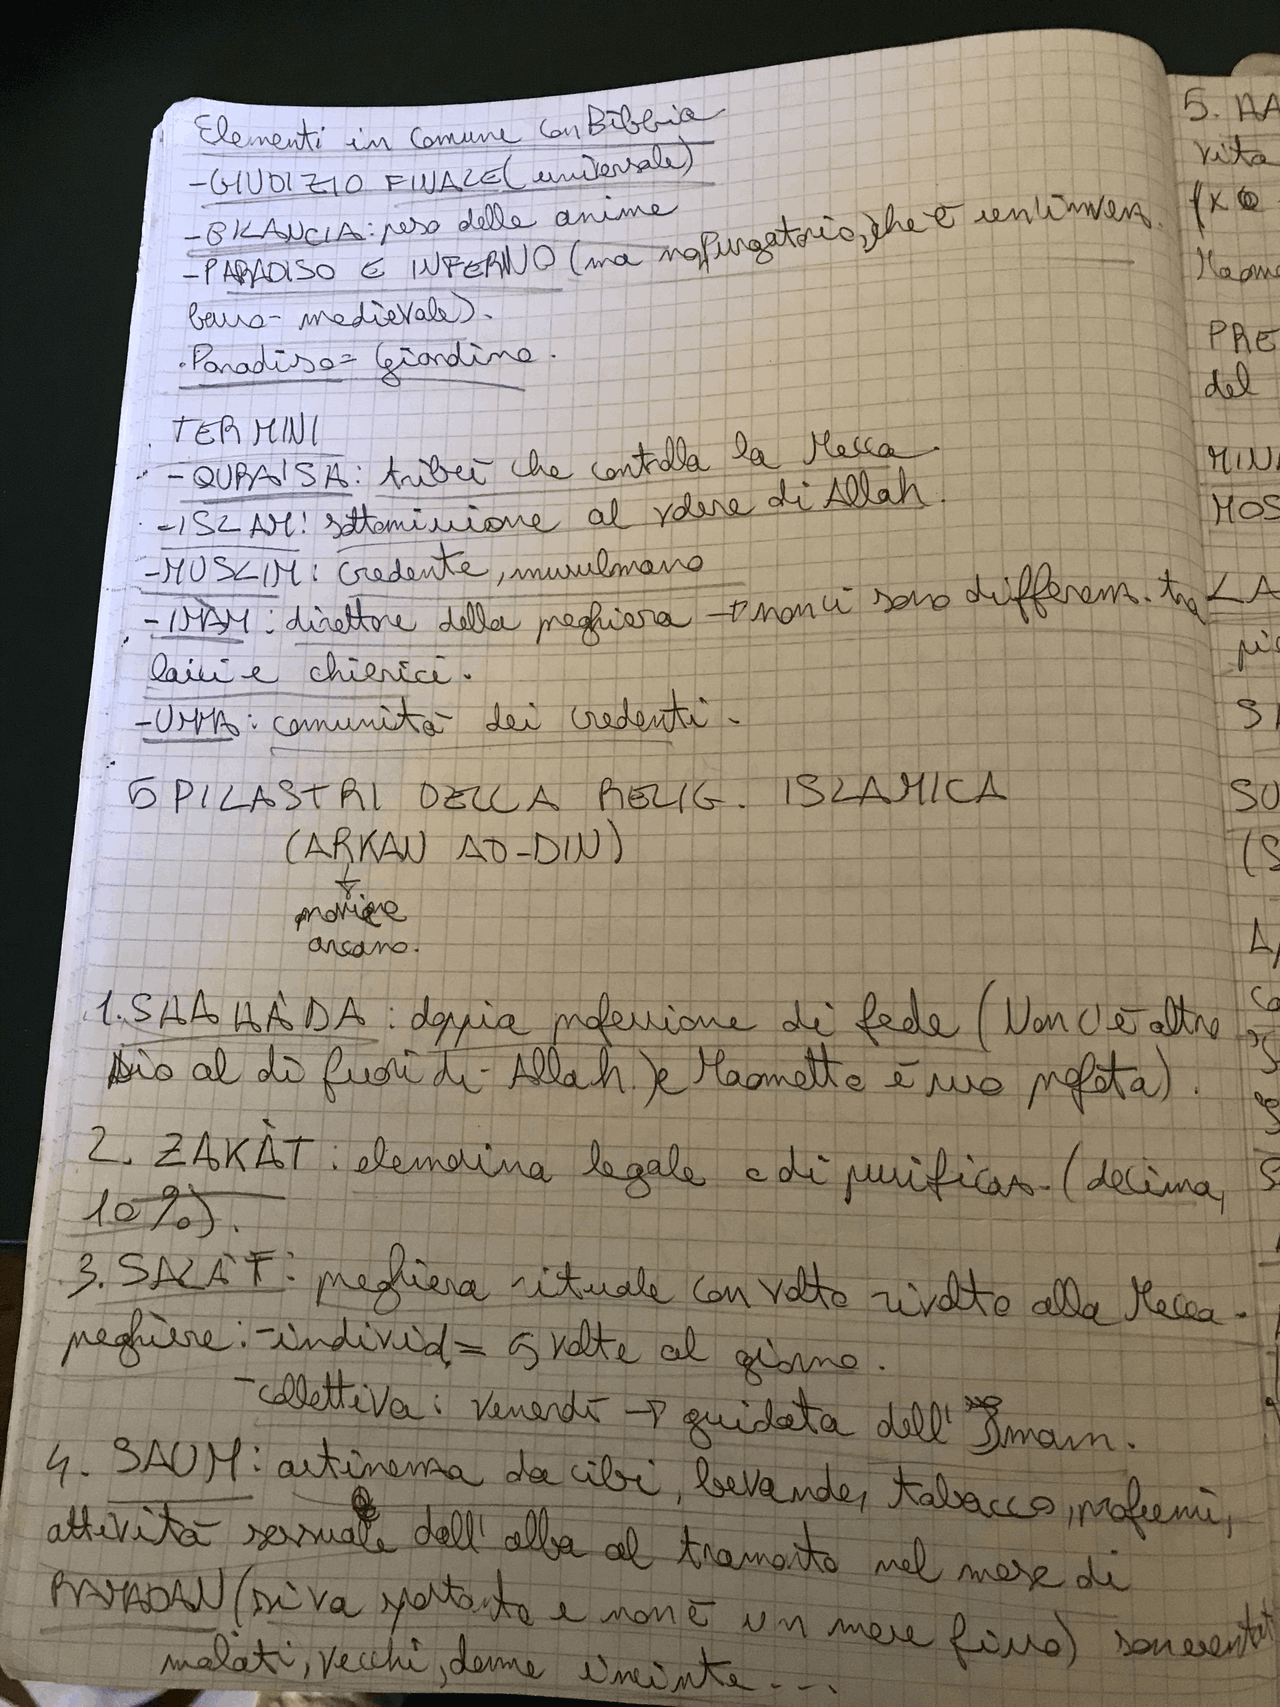 Elementi in comune con Bibbia
-GIUDIZIO FINALE (universale)
-BILANCIA: peso delle anime
-PARADISO E INFERNO (ma no purgatorio, che è un'invenz.
basso-medievale).
.Paradiso = Giardino.
TERMINI
-QURAISA: tribù che controlla la Mecca.
-ISLAM: sottomissione al volere di Allah.
-MUSLIM: credente, musulmano
-IMÀM: direttore della preghiera → non ci sono differenz. tra
laici e chierici.
-UMMA: comunità dei credenti.
5 PILASTRI DELLA RELIG. ISLAMICA
(ARKAN AD-DIN)
↓
arcano.
1. SHAHÀDA: doppia professione di fede (Non c'è altro
Dio al di fuori di Allah) e Maometto è suo profeta).
2. ZAKÀT: elemosina legale e di purificaz. (decima,
10%).
3. SALÀT: preghiera rituale con volto rivolto alla Mecca.
preghiere: -individ. = 5 volte al giorno.
-collettiva: venerdì → guidata dall'Imam.
4. SAUM: astinenza da cibi, bevande, tabacco, profumi,
attività sessuale dall'alba al tramonto nel mese di
RAMADAN (si va spostando e non è un mese fisso) son esentati
malati, vecchi, donne incinte...
5.
vita
Maome
PRE
del
MINA
MOS
LA
SU
(S